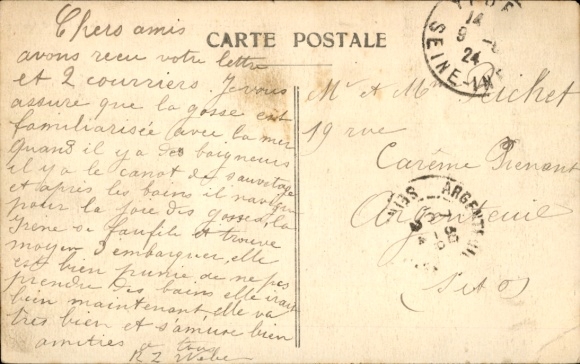 Chers amis
avons reçu votre lettre
et 2 courriers Je vous
assure que la gosse est
familiarisée avec la mer
Quand il y a des baigneurs
il y a le canot de sauvetage
et après les bains il navigue
pour la joie des gosses, la
Irène se faufile et trouve
moyen d'embarquer, elle
est bien punie de ne pas
prendre des bains elle irait
bien maintenant, elle va
très bien et s'amuse bien
amitiés à tous
CARTE POSTALE
14
9
24
SEINE-INF
Mr et Me Peichet
19 rue
Carême Prenant
Argenteuil
(S et O)
ARGENTEUIL
SEINE